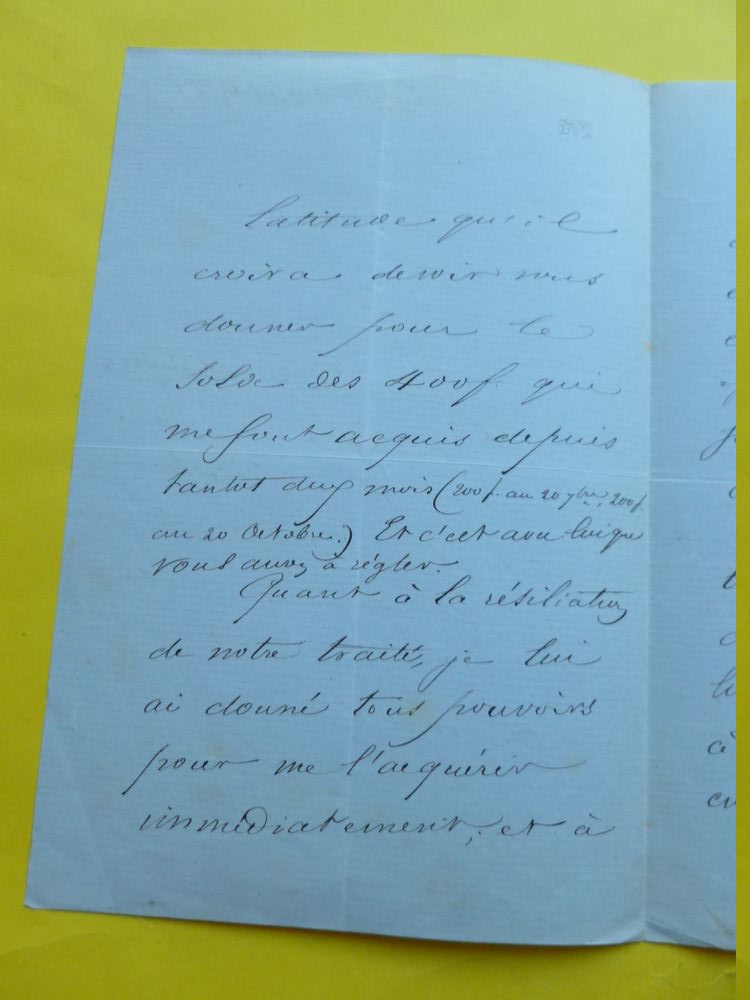 latitude qu'il
croira devoir vous
donner pour le
solde des 400f. qui
me sont acquis depuis
tantot deux mois (200f. au 20 7bre, 200f.
au 20 Octobre.) Et c'est avec lui que
vous aurez à régler.
Quant à la résiliation
de notre traité, je lui
ai donné tous pouvoirs
pour me l'acquérir
immédiatement, et à